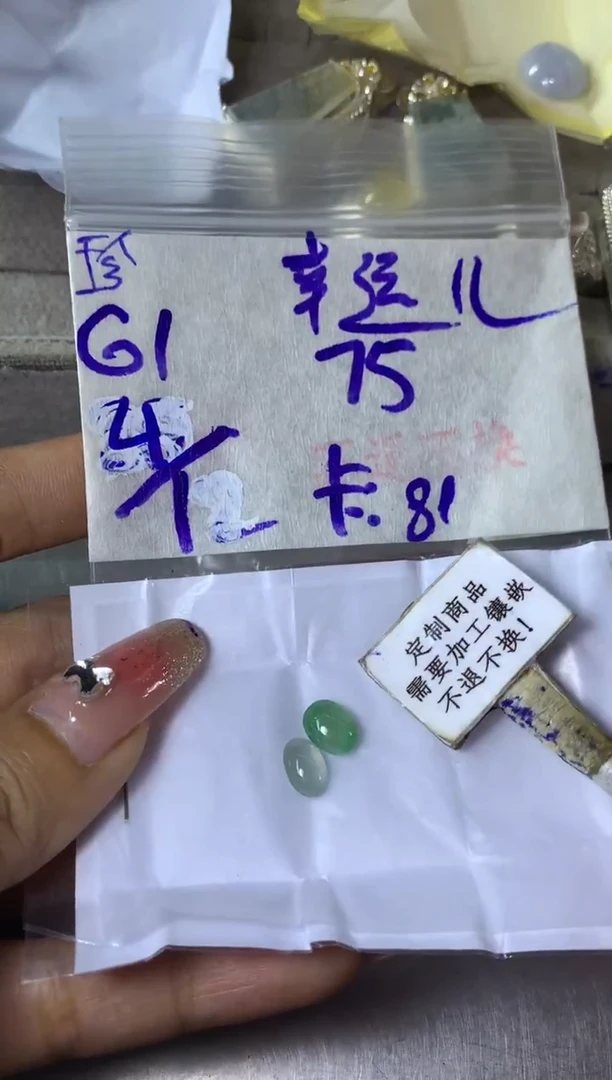 珍
G1
4/12
幸运儿
75
卡.81
定制商品
需要加工镶嵌
不退不换!